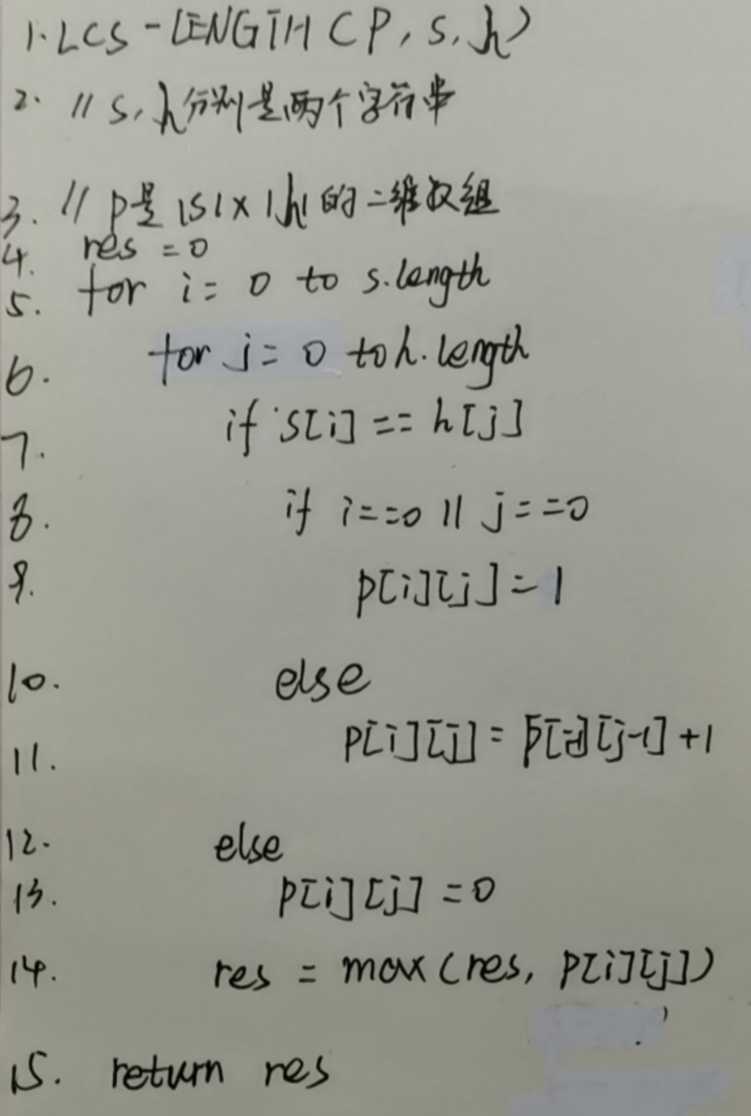 1. LCS-LENGTH(P, s, h)
2. // s, h分别是两个字符串
3. // p是|s|x|h|的二维数组
4. res = 0
5. for i = 0 to s.length
6. for j = 0 to h.length
7. if s[i] == h[j]
8. if i==0 || j==0
9. p[i][j] = 1
10. else
11. p[i][j] = p[i-1][j-1] + 1
12. else
13. p[i][j] = 0
14. res = max(res, p[i][j])
15. return res